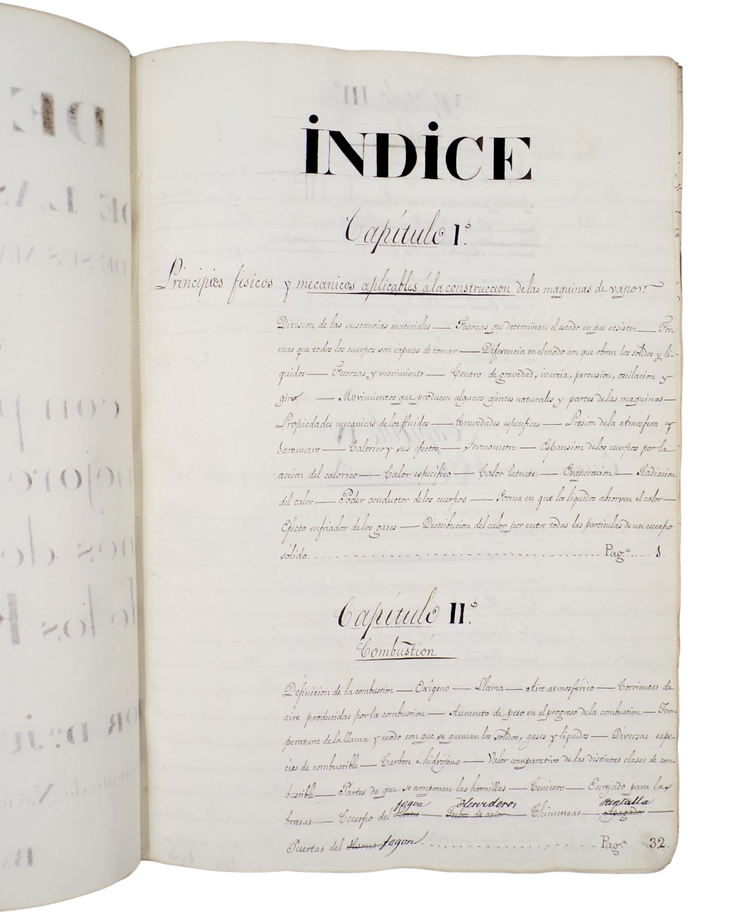 ÍNDICE
Capítulo I.º
Principios fisicos y mecanicos aplicables á la construccion de las maquinas de vapor.
Division de las sustancias materiales — Fuerzas que determinan el estado en que ecsisten — For-
mas que todos los cuerpos son capaces de tomar — Diferencia en el modo con que obran los sólidos y li-
quidos — Fuerzas y movimiento — Centro de gravedad, inercia, percusion, oscilacion y
giro — Movimientos que producen algunos ajentes naturales y partes de las maquinas —
Propiedades mecanicas de los fluidos — Gravedades especificas — Presion de la atmosfera y
barometro — Calorico y sus efectos — Termómetro — Espansion de los cuerpos por la
accion del calórico — Calor especifico — Calor latente — Evaporacion — Radiacion
del calor — Poder conductor de los cuerpos — Forma en que los liquidos absorven el calor —
Efecto enfriador de los gases — Distribucion del calor por entre todas las particulas de un cuerpo
sólido. Pag.ª 1
Capítulo II.º
Combustión
Definicion de la combustion — Oxígeno — Llama — Aire atmosférico — Corrientes de
aire producidas por la combustion — Aumento de peso en el progreso de la combustion — Tem-
peratura de la llama y modo con que se queman los solidos, gases y liquidos — Diversas espe-
cies de combustible — Carbon é hidrójeno — Valor comparativo de las distintas clases de com-
bustible — Partes de que se componen las hornillas — Cenicero — Enrejado para las
fogon Hervidores Pantalla
brasas — Cuerpo del Horno — Tubos de calor — Chimeneas — Apagador
Puertas del Horno fogon. Pag.ª 32